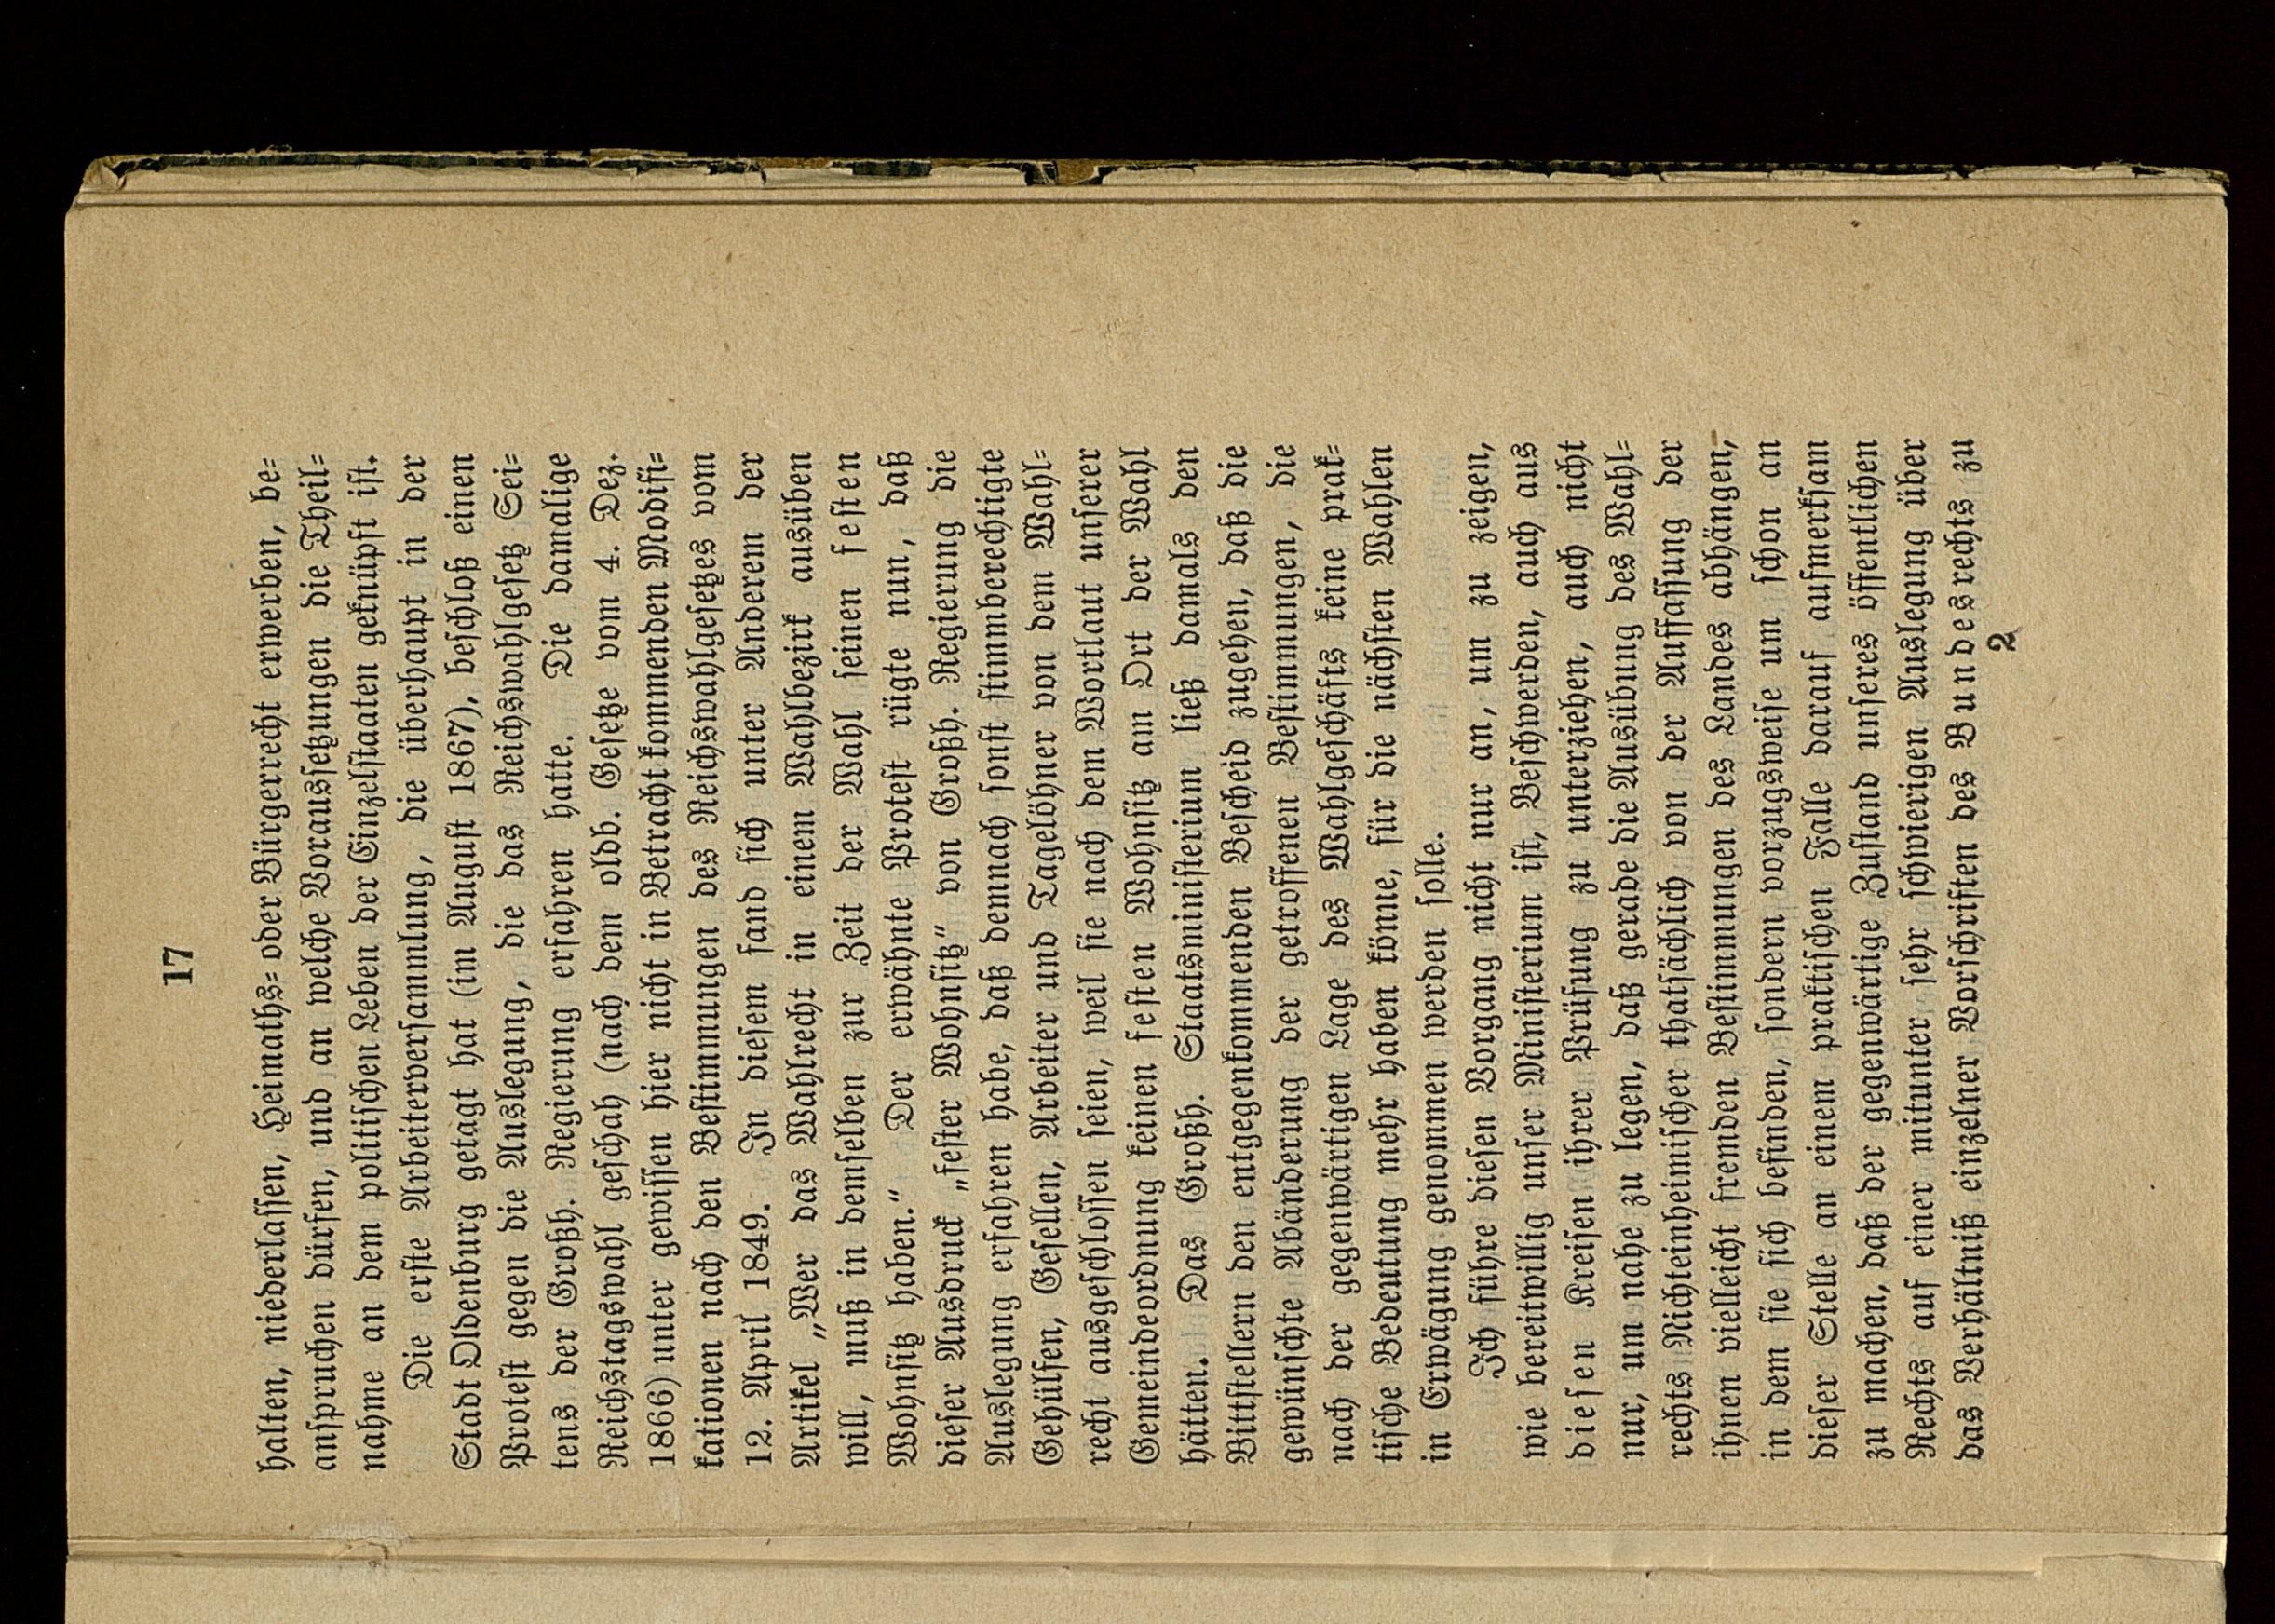 17
halten, niederlassen, Heimaths- oder Bürgerrecht erwerben, be-
anspruchen dürfen, und an welche Voraussetzungen die Theil-
nahme an dem politischen Leben der Einzelstaaten geknüpft ist.
Die erste Arbeiterversammlung, die überhaupt in der
Stadt Oldenburg getagt hat (im August 1867), beschloß einen
Protest gegen die Auslegung, die das Reichswahlgesetz Sei-
tens der Großh. Regierung erfahren hatte. Die damalige
Reichstagswahl geschah (nach dem oldb. Gesetze vom 4. Dez.
1866) unter gewissen hier nicht in Betracht kommenden Modifi-
kationen nach den Bestimmungen des Reichswahlgesetzes vom
12. April 1849. In diesem fand sich unter Anderem der
Artikel „Wer das Wahlrecht in einem Wahlbezirk ausüben
will, muß in demselben zur Zeit der Wahl seinen festen
Wohnsitz haben.“ Der erwähnte Protest rügte nun, daß
dieser Ausdruck „fester Wohnsitz“ von Großh. Regierung die
Auslegung erfahren habe, daß demnach sonst stimmberechtigte
Gehülfen, Gesellen, Arbeiter und Tagelöhner von dem Wahl-
recht ausgeschlossen seien, weil sie nach dem Wortlaut unserer
Gemeindeordnung keinen festen Wohnsitz am Ort der Wahl
hätten. Das Großh. Staatsministerium ließ damals den
Bittstellern den entgegenkommenden Bescheid zugehen, daß die
gewünschte Abänderung der getroffenen Bestimmungen, die
nach der gegenwärtigen Lage des Wahlgeschäfts keine prak-
tische Bedeutung mehr haben könne, für die nächsten Wahlen
in Erwägung genommen werden solle.
Ich führe diesen Vorgang nicht nur an, um zu zeigen,
wie bereitwillig unser Ministerium ist, Beschwerden, auch aus
diesen Kreisen ihrer Prüfung zu unterziehen, auch nicht
nur, um nahe zu legen, daß gerade die Ausübung des Wahl-
rechts Nichteinheimischer thatsächlich von der Auffassung der
ihnen vielleicht fremden Bestimmungen des Landes abhängen,
in dem sie sich befinden, sondern vorzugsweise um schon an
dieser Stelle an einem praktischen Falle darauf aufmerksam
zu machen, daß der gegenwärtige Zustand unseres öffentlichen
Rechts auf einer mitunter sehr schwierigen Auslegung über
das Verhältniß einzelner Vorschriften des Bundesrechts zu
2